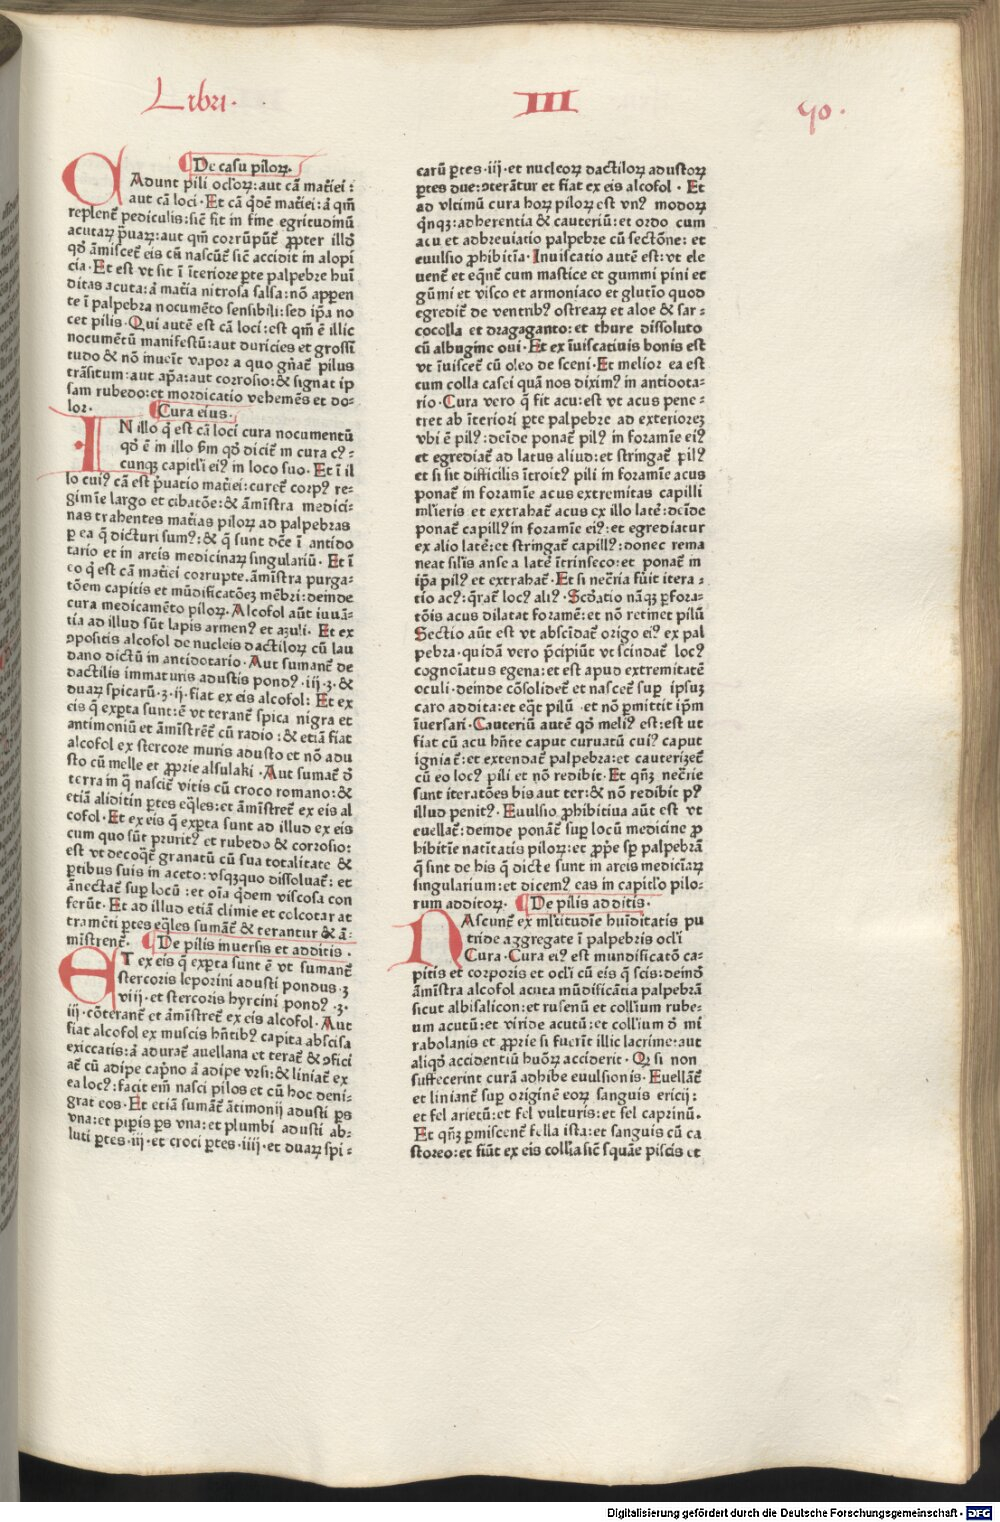 Libri.
III
90.
De casu piloꝝ.
CAdunt pili ocloꝝ: aut cā mat̄iei:
aut cā loci. Et cā q̄dē mat̄iei: ā qm̄
replent᷑ pediculis: sic̄ fit in fine egritudinū
acutaꝝ p̄uaꝝ: aut qm̄ corrūpūt᷑ ꝓpter illō
qō āmiscet᷑ eis cū nascūt᷑ sic̄ accidit in alopi
cia. Et est vt sit ī īteriore ꝑte palpebre hui
ditas acuta: ā mat̄ia nitrosa salsa: nō appen
te ī palpebra nocumēto sensibili: sed ip̄a no
cet pilis. Qui autē est cā loci: est qm̄ ē illic
nocumētū manifestū: aut duricies et grossi
tudo & nō inuēit vapor a quo gn̄at᷑ pilus
trāsitum: aut apta: aut corrosio: & signat ip
sam rubedo: et mordicatio vehemēs et do
lor. Cura eius.
IN illo q̄ est cā loci cura nocumentū
qō ē in illo ẜm qō dicit᷑ in cura cꝰ-
cunqꝫ capitli eiꝰ in loco suo. Et ī il
lo cuiꝰ cā est p̄uatio mat̄iei: curet᷑ corpꝰ re-
gimīe largo et cibatōe: & āministra medici-
nas trahentes mat̄ias piloꝝ ad palpebras
ꝑ ea q̄ dicturi sumꝰ: & q̄ sunt dc̄e ī antido
tario et in areis medicinaꝝ singulariū. Et ī
eo q̄ est cā mat̄iei corrupte. āministra purga-
tōem capitis et mūdificatōeꝫ mēbri: deinde
cura medicamēto piloꝝ. Alcofol aūt iuuā-
tia ad illud sūt lapis armenꝰ et azuli. Et ex
ↄpositis alcofol de nucleis dactiloꝝ cū lau
dano dictū in antidotario. Aut sumant᷑ de
dactilis immaturis adustis pondꝰ. iij. ʒ. &
duaꝝ spicarū. ʒ. ij. fiat ex eis alcofol: Et ex
eis q̄ exꝑta sunt: ē vt terant᷑ spica nigra et
antimoniū et āministrēt᷑ cū radio: & etiā fiat
alcofol ex stercore muris adusto et nō adu
sto cū melle et ꝓprie alsulaki. Aut sumat᷑ ō
terra in q̄ nascit᷑ vitis cū croco romano: &
etiā aliditin ꝑtes eq̄les: et āministret᷑ ex eis al
cofol. Et ex eis q̄ exꝑta sunt ad illud ex eis
cum quo sūt pruritꝰ et rubedo & corrosio:
est vt decoq̄t᷑ granatū cū sua totalitate &
ꝑtibus suis in aceto: vsqꝫquo dissoluat᷑: et
ānectat᷑ suꝑ locū: et oīa q̄dem viscosa con
ferūt. Et ad illud etiā climie et colcotar at
tramēti ꝑtes eq̄les sumāt᷑ & terantur & ā-
mīstrent᷑. De pilis inuersis et additis.
ET ex eis q̄ exꝑta sunt ē vt sumant᷑
stercoris leporini adusti pondus. ʒ
viij. et stercoris hyrcini pondꝰ. ʒ.
iij. cōterant᷑ et āministret᷑ ex eis alcofol. Aut
fiat alcofol ex muscis hn̄tibꝰ capita abscisa
exiccatis: ā adurat᷑ auellana et terat᷑ & ↄfici
at᷑ cū adipe capno ā adipe vrsi: & liniat᷑ ex
ea locꝰ: facit em̄ nasci pilos et cū hoc deni-
grat eos. Et etiā sumat᷑ ātimonij adusti ꝑs
vna: et piꝑis ꝑs vna: et plumbi adusti ab-
luti ꝑtes. iij. et croci ꝑtes. iiij. et duaꝝ spi-
carū ꝑtes. iij. et nucleoꝝ dactiloꝝ adustoꝝ
ꝑtes due: ↄterātur et fiat ex eis alcofol. Et
ad vltimū cura hoꝝ piloꝝ est vnꝰ modoꝝ
q̄nqꝫ: adherentia & cauteriū: et ordo cum
acu et adbreuiatio palpebre cū sectōne: et
euulsio ꝓhibitīa. Inuiscatio autē est: vt ele
uent᷑ et eq̄nt᷑ cum mastice et gummi pini et
gūmi et visco et armoniaco et glutio quod
egredit᷑ de ventribꝰ ostreaꝝ et aloe & sar-
cocolla et dragaganto: et thure dissoluto
cū albugine oui. Et ex īuiscatiuis bonis est
vt īuiscet᷑ cū oleo de sceni. Et melior ea est
cum colla casei quā nos diximꝰ in antidota-
rio. Cura vero q̄ fit acu: est vt acus pene-
tret ab īteriori ꝑte palpebre ad exterioreꝫ
vbi ē pilꝰ: deīde ponat᷑ pilꝰ in foramīe eiꝰ
et egrediat᷑ ad latus aliud: et stringat᷑ pilꝰ
et si sit difficilis ītroitꝰ pili in foramīe acus
ponat᷑ in foramīe acus extremitas capilli
ml̄ieris et extrahat᷑ acus ex illo late: deīde
ponat᷑ capillꝰ in foramīe eiꝰ: et egrediatur
ex alio late: et stringat᷑ capillꝰ: donec rema
neat sil̄is anse a late ītrinseco: et ponat᷑ in
ip̄a pilꝰ et extrahat᷑. Et si nec̄ria fūit itera-
tio acꝰ: q̄rat᷑ locꝰ aliꝰ. Scd̄atio nāqꝫ ꝑfora-
tōis acus dilatat foramē: et nō retinet pilū
Sectio aūt est vt abscīdat᷑ origo eiꝰ ex pal
pebra. quidā vero p̄cipiūt vt scindat᷑ locꝰ
cognoīatus egena: et est apud extremitatē
oculi. deinde cōsolidet᷑ et nascet᷑ suꝑ ipsuꝫ
caro addita: et eq̄t pilū et nō ꝑmittit ip̄m
īuersari. Cauteriū autē qō meliꝰ est: est ut
fiat cū acu hn̄te caput curuatū cuiꝰ caput
igniat᷑: et extendat᷑ palpebra: et cauterizet᷑
cū eo locꝰ pili et nō redibit. Et qn̄ꝫ nec̄rie
sunt iteratōes bis aut ter: & nō redibit pꝰ
illud penitꝰ. Euulsio ꝓhibitiua aūt est vt
euellat᷑: deinde ponāt᷑ suꝑ locū medicine ꝓ
hibitīe natiītatis piloꝝ: et ꝓpe sꝑ palpebrā
q̄ sint de his q̄ dicte sunt in areis mediciaꝝ
singularium: et dicemꝰ eas in capitl̄o pilo-
rum additoꝝ. De pilis additis.
NAscunt᷑ ex ml̄titudīe huīditatis pu
tride aggregate ī palpebris ocl̄i
Cura. Cura eiꝰ est mundificatō ca-
pitis et corporis et ocl̄i cū eis q̄ scis: deindō
āministra alcofol acuta mūdificātia palpebrā
sicut albisalicon: et rusenū et coll̄ium rube-
um acutū: et viride acutū: et coll̄ium ō mi
rabolanis et ꝓprie si fuerit illic lacrime: aut
aliqō accidentiū huōꝝ acciderit. Qƺ si non
suffecerint curā adhibe euulsionis. Euellāt᷑
et liniant᷑ suꝑ originē eoꝝ sanguis ericij:
et fel arietū: et fel vulturis: et fel caprinū.
Et qn̄ꝫ ꝑmiscent᷑ fella ista: et sanguis cū ca
storeo: et fiūt ex eis coll̄ia sic̄ squāe piscis et
Digitalisierung gefördert durch die Deutsche Forschungsgemeinschaft - DFG